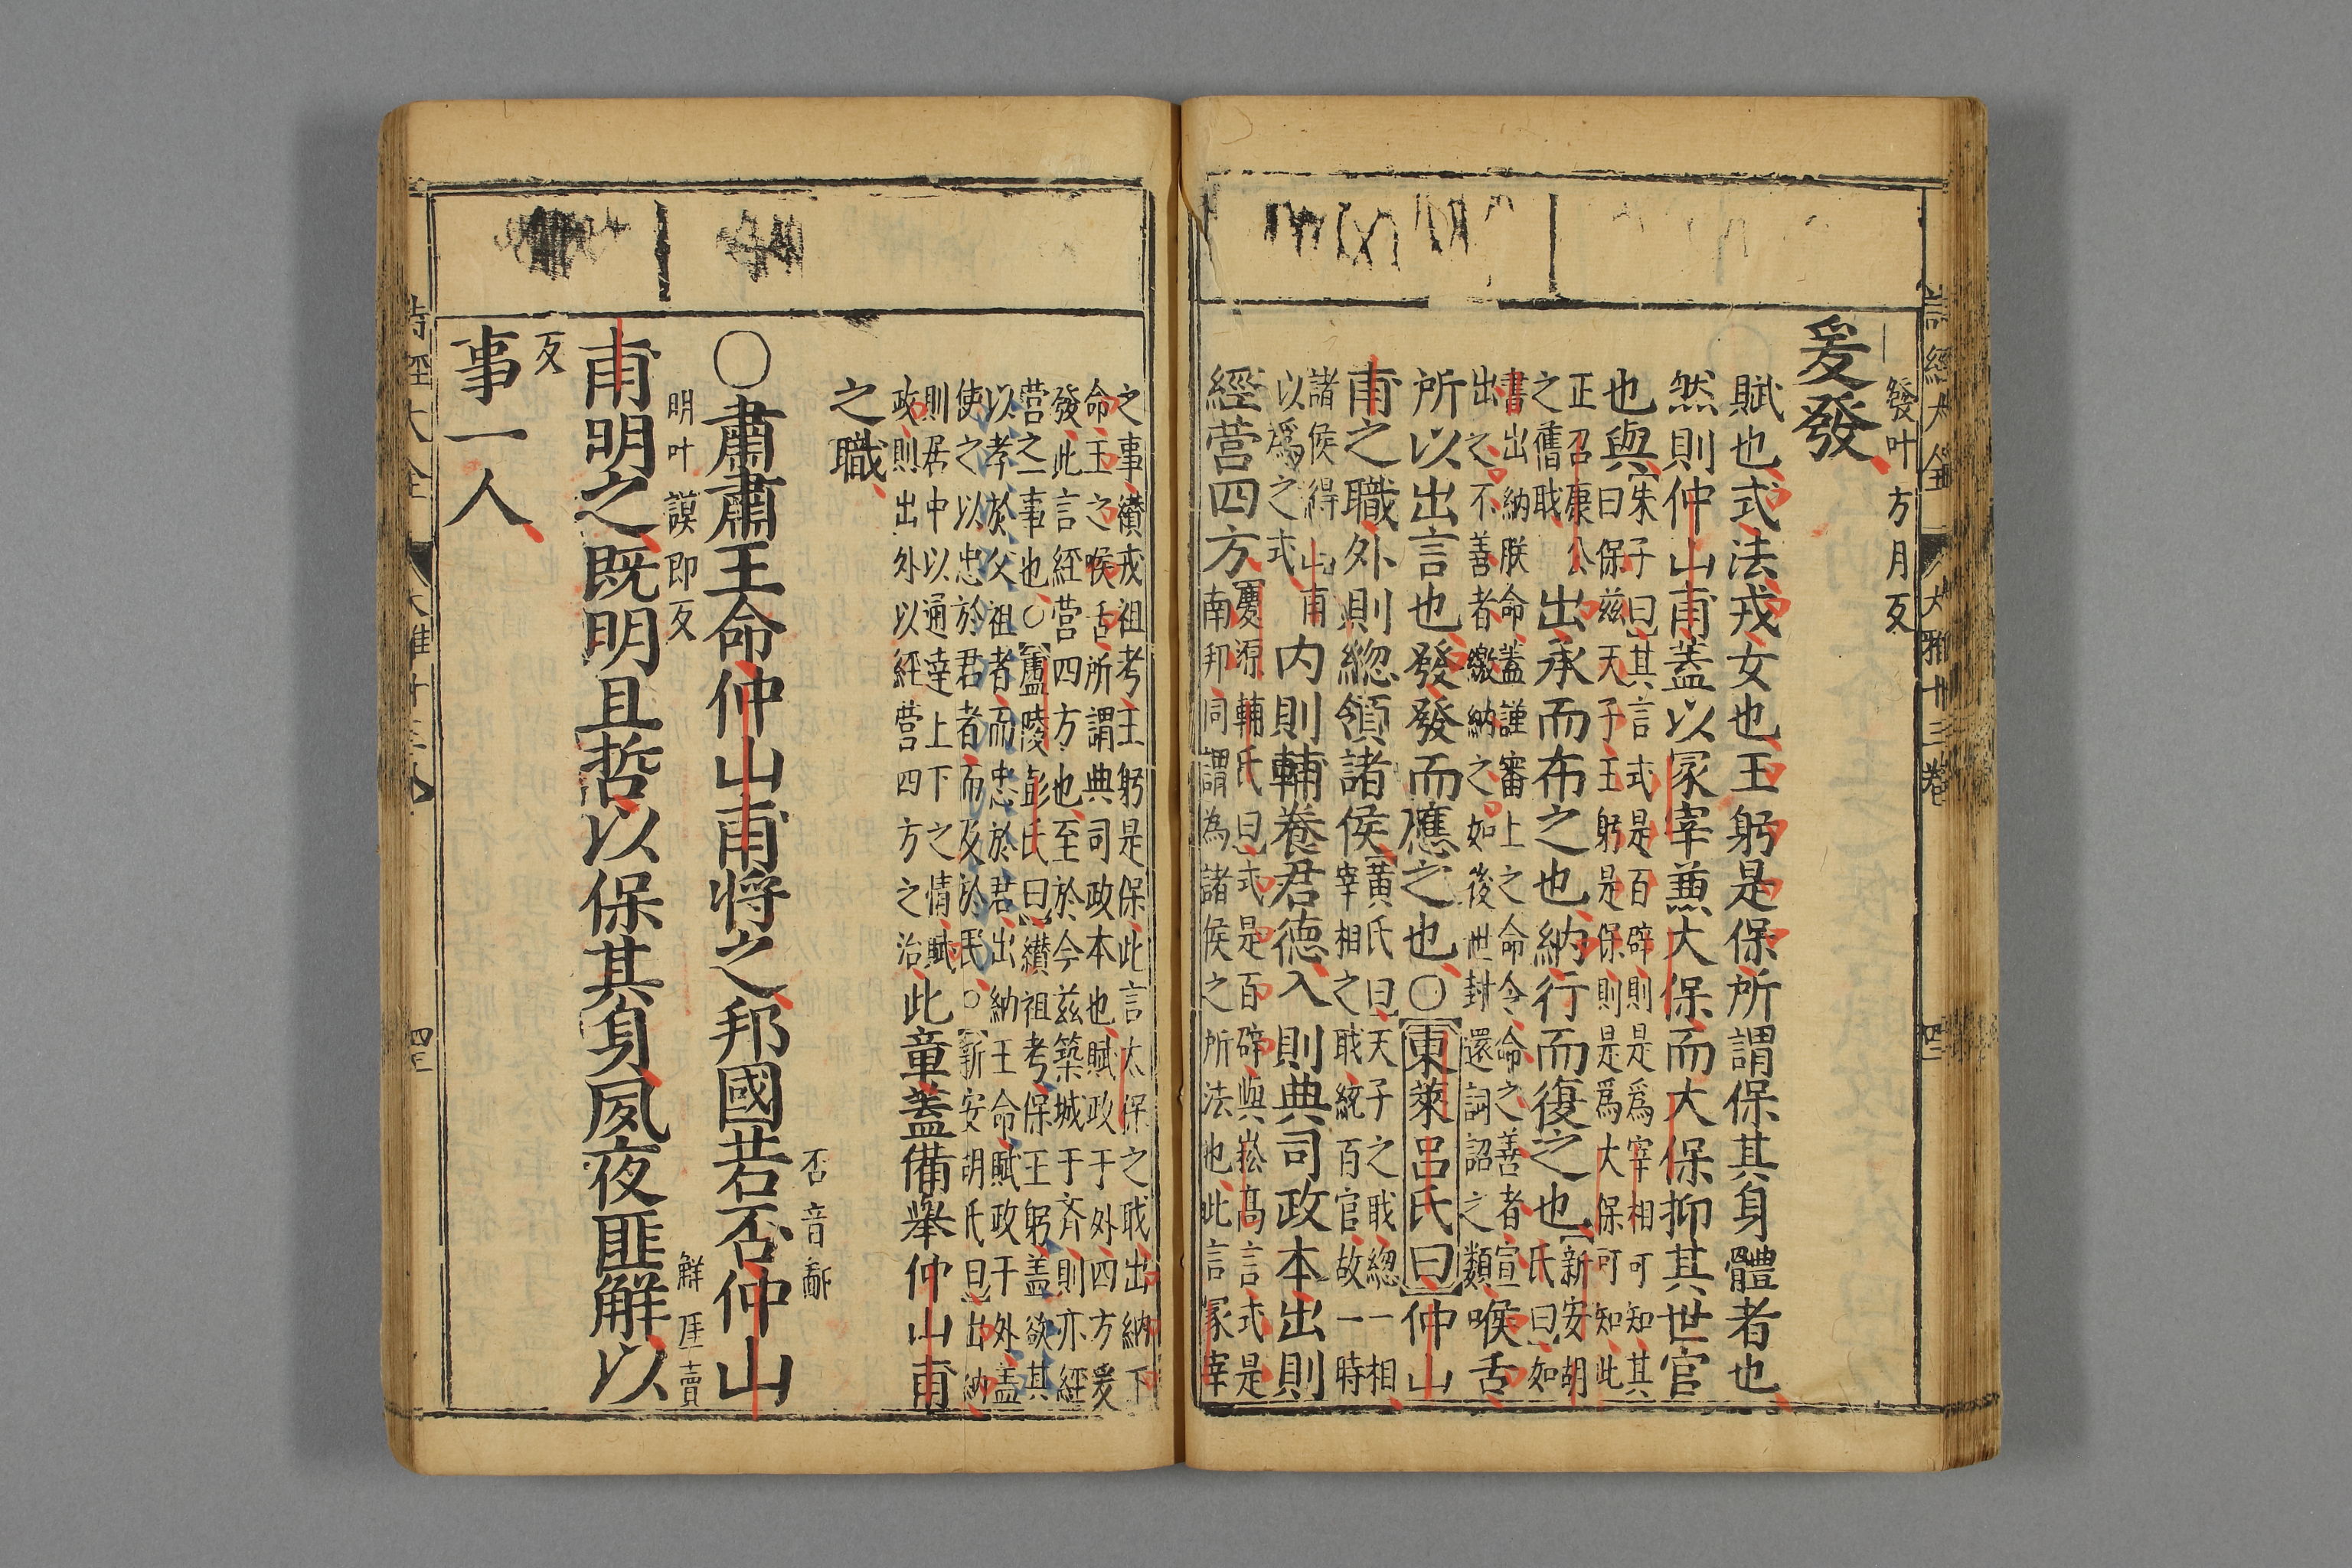 詩經大全 大雅十三卷
發叶方月反
爰發
賦也式法戎女也王躬是保所謂保其身體者也
然則仲山甫蓋以冢宰兼大保而大保抑其世官
也與朱子曰其言式是百辟則是爲宰相可知其
曰保茲天子王躬是保則是爲大保可知此
正召康公
之舊戢
出承而布之也納行而復之也新安胡
氏曰如
書出納朕命蓋謹審上之命令命之善者宣
出之不善者繳納之如後世封還詞詔之類
喉舌
所以出言也發發而應之也○東萊呂氏曰仲山
甫之職外則緫領諸侯黃氏曰天子之戢緫一相
宰相之戢統百官故一時
諸侯得山甫
以爲之式
内則輔養君德入則典司政本出則
經营四方
慶源輔氏曰式是百辟與崧高言式是
南邦同謂為諸侯之所法也此言冢宰
之事纉戎祖考王躬是保此言太保之戢出納
命王之喉舌所謂典司政本也賦政于外四方爰
發此言經营四方也至於今茲築城于齊則亦經
营之一事也○廬陵彭氏曰纉祖考保王躬盖欲其
以孝於父祖者而忠於君出納王命賦政于外盖
使之以忠於君者而及於民○新安胡氏曰出納
則居中以通達上下之情賦
政則出外以經营四方之治
此章蓋備舉仲山甫
之職
○肅肅王命仲山甫將之邦國若否仲山
否音鄙
甫明之既明且哲以保其身夙夜匪解以
明叶謨郎反
解厓賣
反
事一人
詩經大全